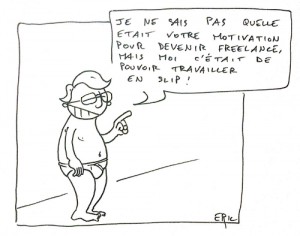 JE NE SAIS PAS QUELLE
ETAIT VOTRE MOTIVATION
POUR DEVENIR FREELANCE,
MAIS MOI C'ÉTAIT DE
POUVOIR TRAVAILLER
EN SLIP!
ERIC